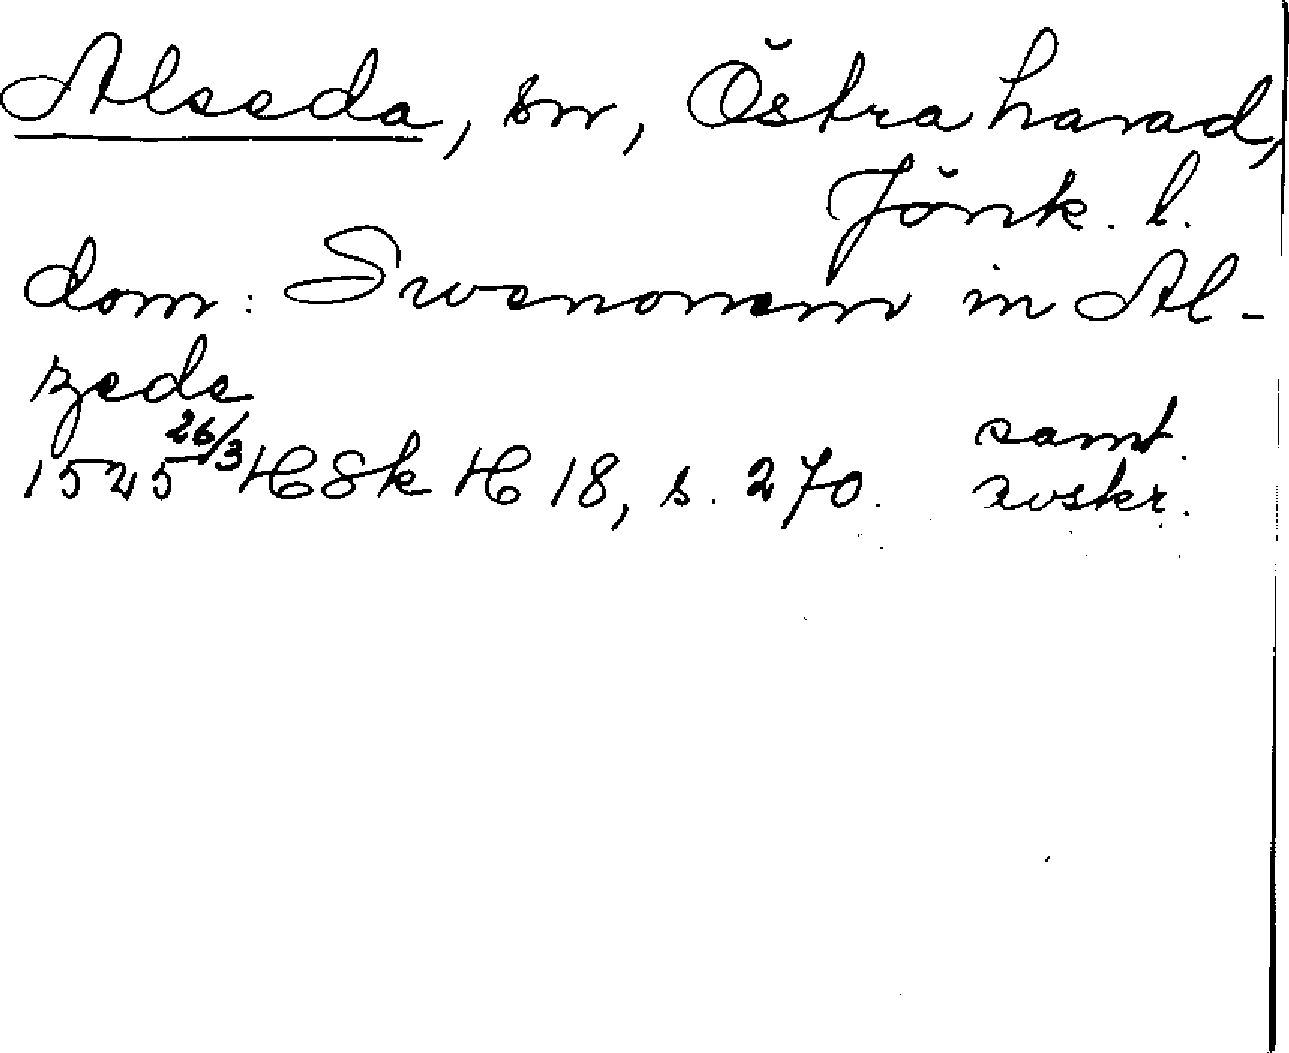 Alseda, sn, Östra härad,
Jönk. l.
dom: Swenonem in Al-
zede
1545 26/3 HSH H 18, s. 270. samt.
avskr.